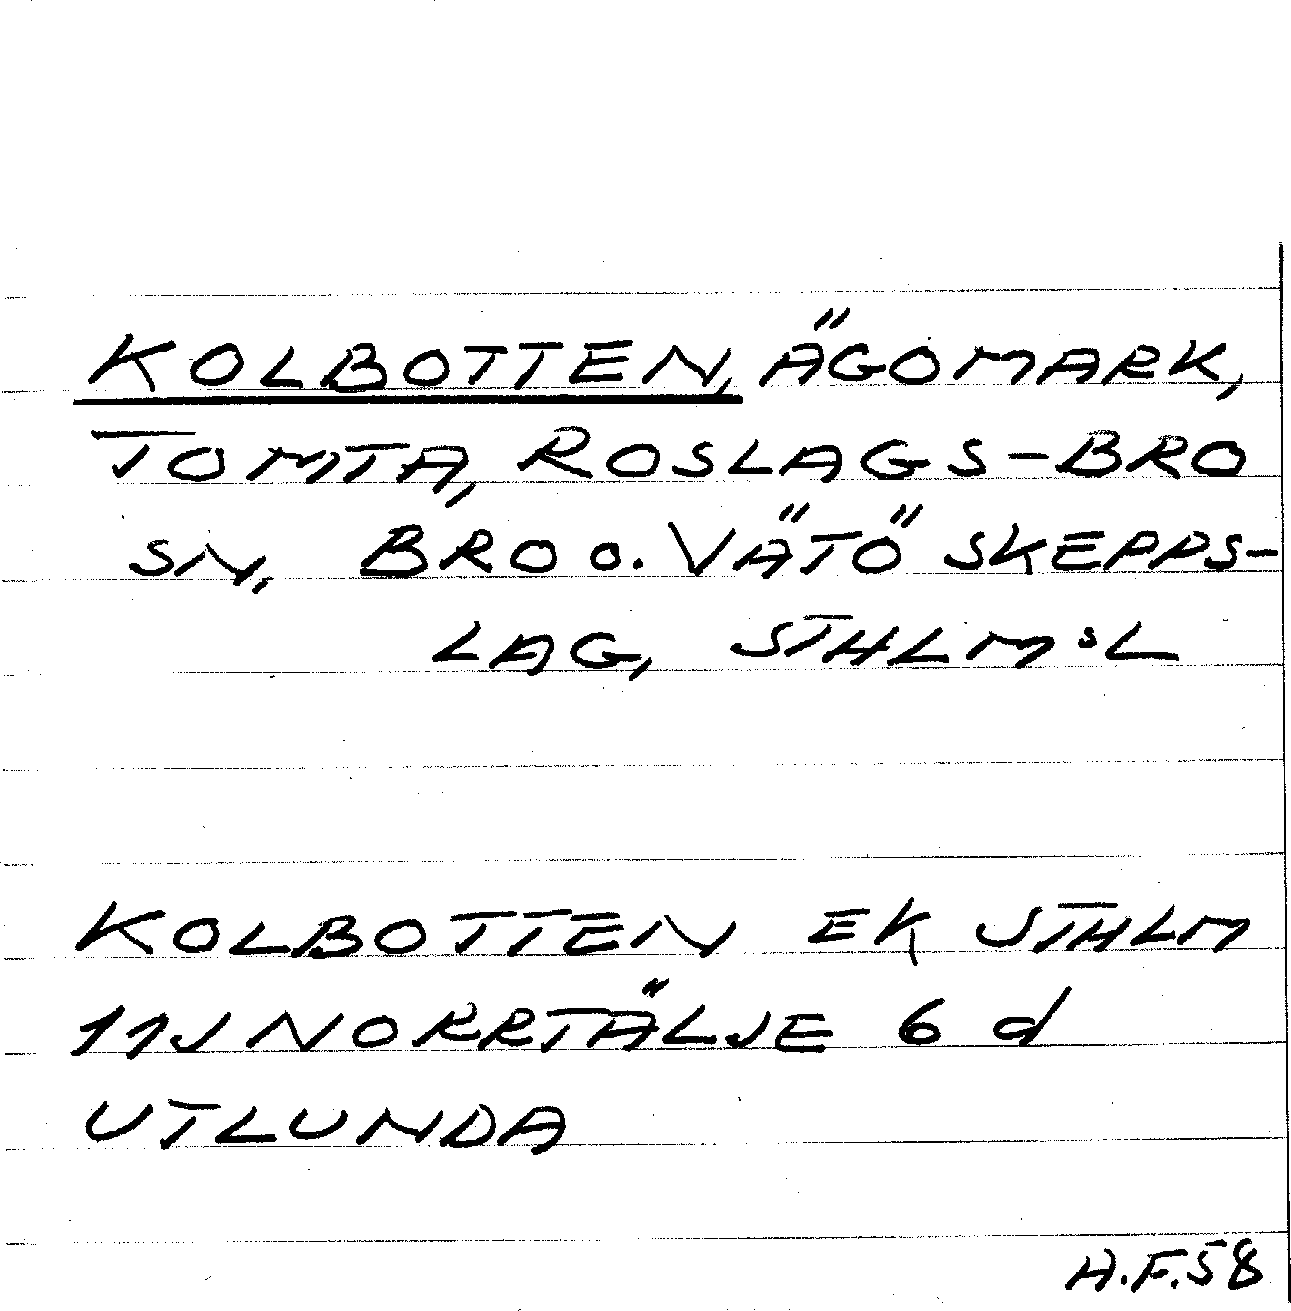 KOLBOTTEN, ÄGOMARK,
TOMTA, ROSLAGS-BRO
SN, BRO o. VÄTÖ SKEPPS-
LAG, STHLM:s L
KOLBOTTEN EK STHLM
11J NORRTÄLJE 6 d
UTLUNDA
H.F.58